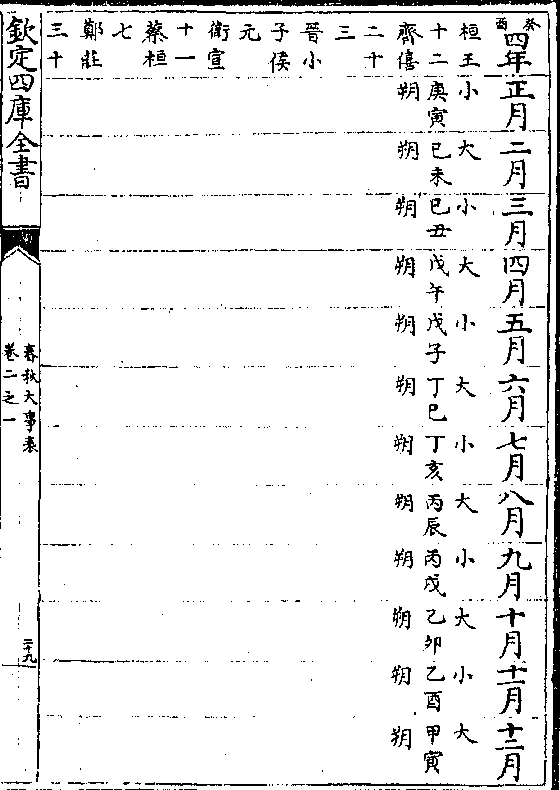 癸酉
四年
桓王
十二
齊僖
二十
三
晉小
子侯
元
衛宣
十一
蔡桓
七
鄭莊
三十
正月
小
庚寅
朔
二月
大
己未
朔
三月
小
己丑
朔
四月
大
戊午
朔
五月
小
戊子
朔
六月
大
丁巳
朔
七月
小
丁亥
朔
八月
大
丙辰
朔
九月
小
丙戌
朔
十月
大
乙卯
朔
十一月
小
乙酉
朔
十二月
大
甲寅
朔
欽定四庫全書
春秋大事表
卷二之一
二十九